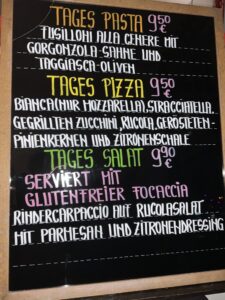 TAGES PASTA 9,50 €
FUSILLOHI ALLA CENERE MIT
GORGONZOLA-SAHNE UND
TAGGIASCA-OLIVEN
TAGES PIZZA 9,50 €
BIANCA(NUR MOZZARELLA),STRACCIATELLA,
GEGRILLTEN ZUCCHINI,RUCOLA,GERÖSTETEN-
PINIENKERNEN UND ZITRONENSCHALE
TAGES SALAT 9,90 €
SERVIERT MIT
GLUTENFREIER FOCACCIA
RINDERCARPACCIO AUF RUCOLASALAT
MIT PARMESAN UND ZITRONENDRESSING